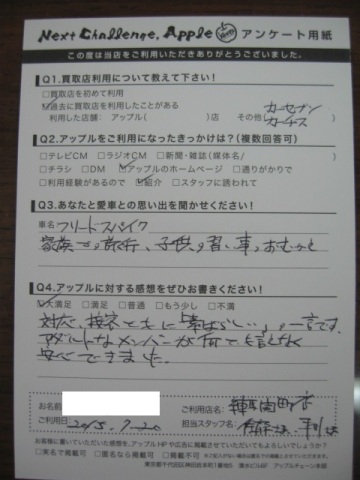 Next Challenge, Apple アンケート用紙
この度は当店をご利用いただきありがとうございました。
Q1.買取店利用について教えて下さい!
□買取店を初めて利用
☑過去に買取店を利用したことがある
利用した店舗: アップル( )店 その他( カーセブン カーチス )
Q2.アップルをご利用になったきっかけは?(複数回答可)
□テレビCM □ラジオCM □新聞・雑誌(媒体名/ )
□チラシ □DM ☑アップルのホームページ □通りがかりで
□利用経験があるので ☑紹介 □スタッフに誘われて
Q3.あなたと愛車との思い出を聞かせください!
車名 フリードスパイク
家族との旅行、子供の習い事のおむかえ
Q4.アップルに対する感想をぜひお書きください!
☑大満足 □満足 □普通 □もう少し □不満
対応、接客ともに「素ばらしい」の一言です。
メンバーが何で
安心できました。
お名前
ご利用店名:
ご利用日 2015. 7-20 担当スタッフ名: 佐藤さま、平川さま
お客様に書いていただいた感想を、アップルHPや広告に掲載させていただいてもよろしいでしょうか?
□実名で掲載可 □匿名なら掲載可 □掲載不可
東京都千代田区神田岩本町1番地5 清水ビル6F アップルチェーン本部